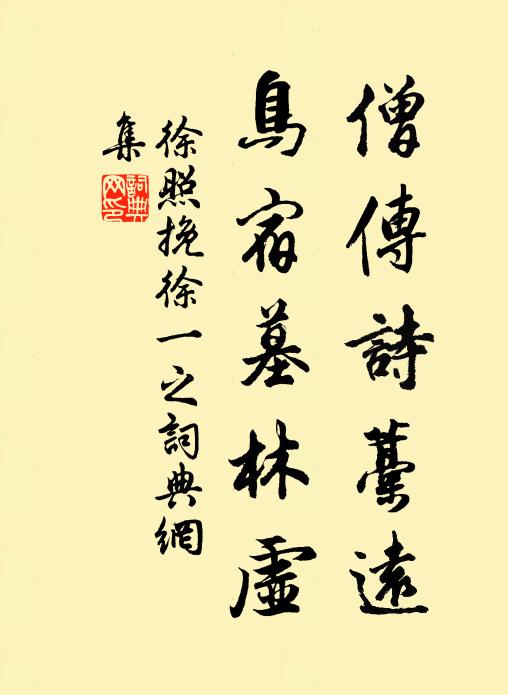 僧傳詩藳遠
鳥宿墓林虛
徐照挽徐一之詞典網
集
詞典
网印